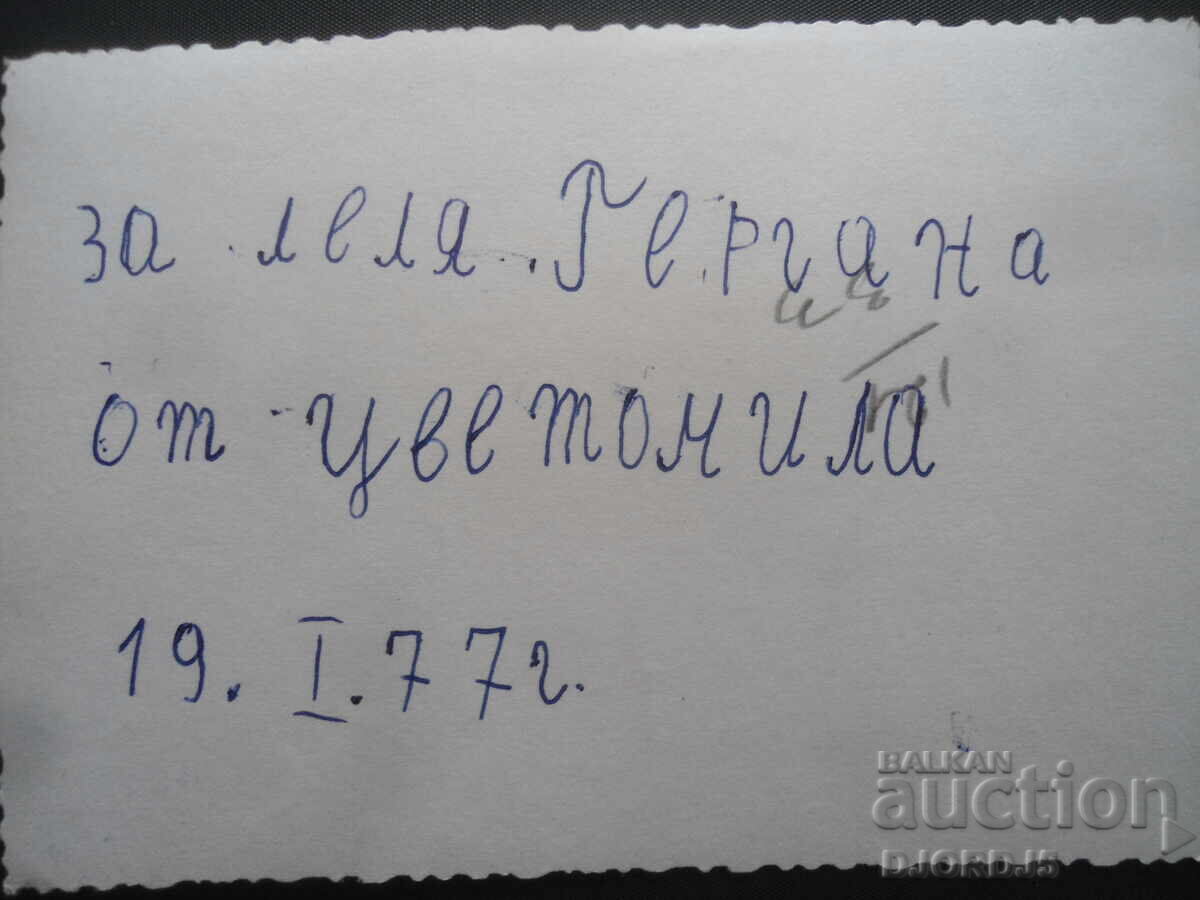 за леля Гергана
от цветомила
19. I. 77г.
BALKAN
auction
DJORDJ5